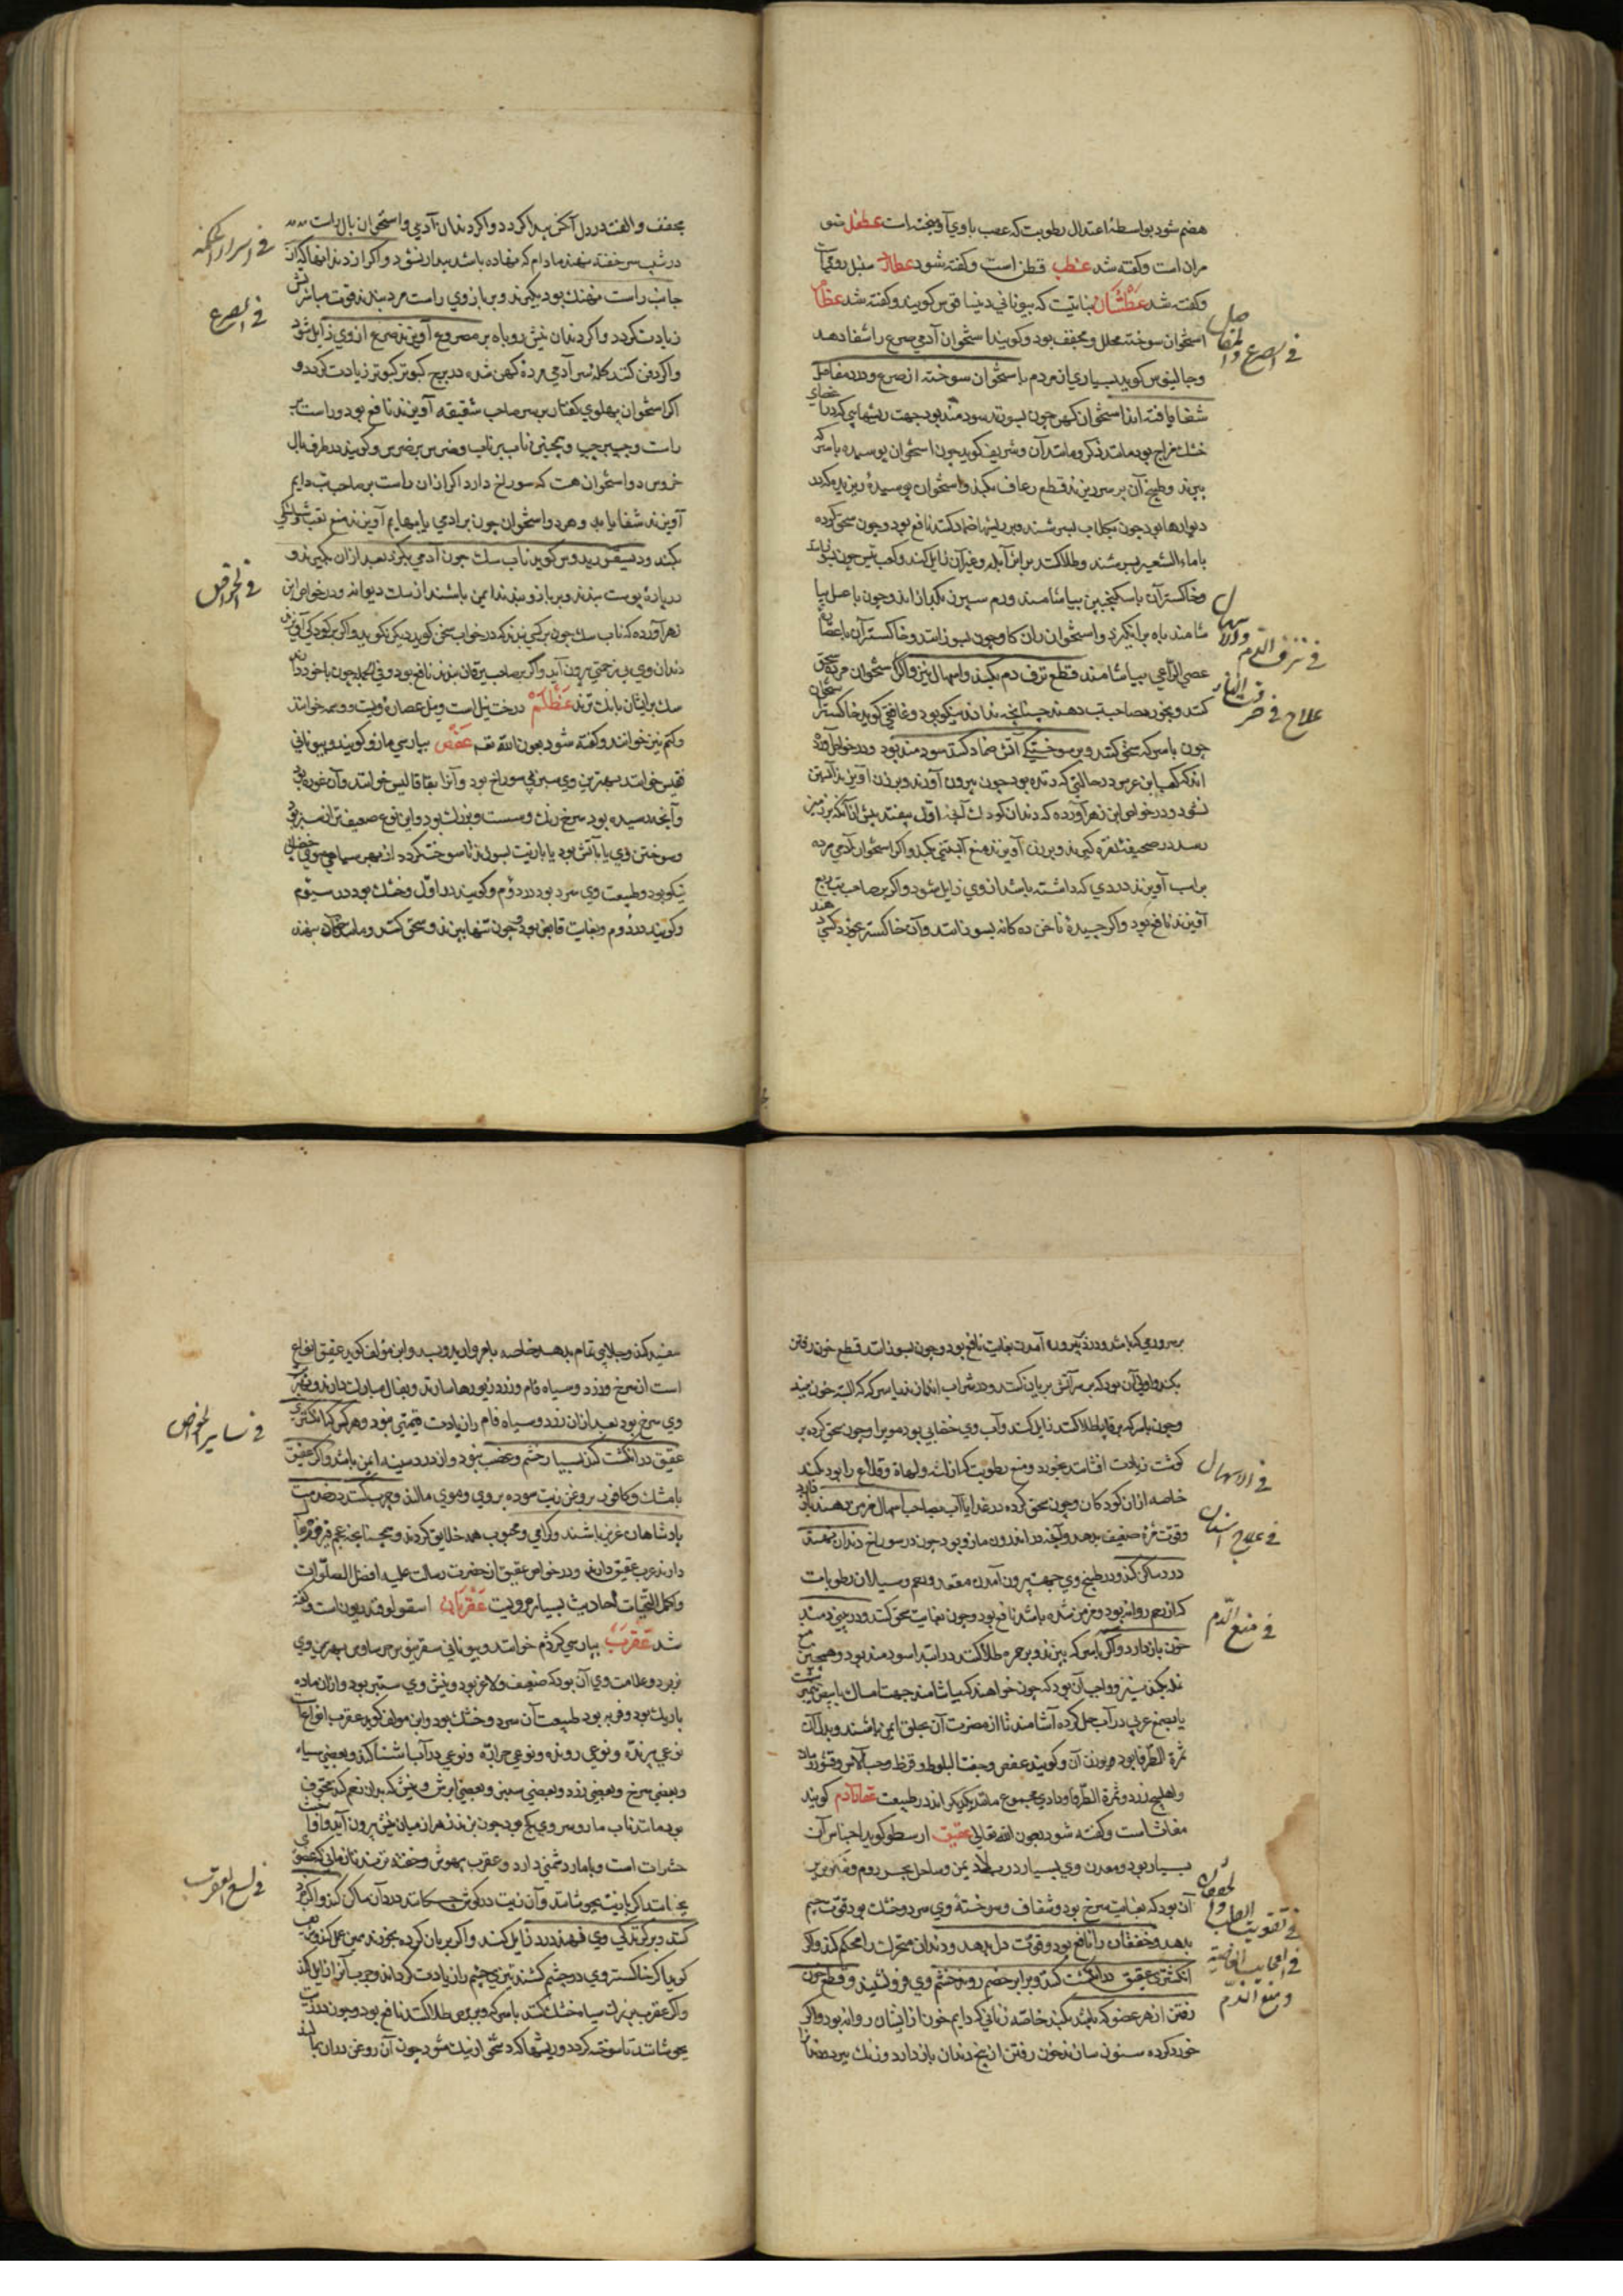 هضم شود بواسطهٔ اعتدال رطوبت که عصب باوی آویخته است عطفل
مران است وکفته شد عطب قطن است وکفته شود عطارد سنبل رومیست
وکفته شد عطشان نباتیست که بیونانی دینساقوس کویند وکفته شد عظام
استخوان سوخته محلل ومجفف بود وکویند استخوان آدمی صرع را شفا دهد
فی الصرع والمفاصل
وجالینوس کوید بسیاری از مردم با استخوان سوخته از صرع ودرد مفاصل
شفا یافته اند استخوان کهن چون بسوزند سودمند بود جهت ریشهایی که در اعضای
خشک مزاج بود مانند ذکر ومانند آن وشریف کوید چون استخوان پوسیده باسرکه
بپزند وطبیخ آن بر سر ریزند قطع رعاف بکند واستخوان پوسیده ریزیده که در
دیوارها بود چون بکلاب بسرشند وبر ریشها ضماد کنند نافع بود وچون سحق کرده
باماء الشعیر بسرشند وطلا کنند بر اثر آبله وغیر آن زایل کند وکعب تیس چون بسوزانند
وخاکستر آن باسکنجبین بیاشامند ورم سپرز بکدازاند وچون با عسل بیا
شامند باه برانکیزد واستخوان ران کاو چون بسوزانند وخاکستر آن با عصارهٔ
فی نزف الدم والاسهال
عصی الراعی بیاشامند قطع نزف دم بکند واسهال نیز واکر استخوان مرده سحق
کنند وبخورد صاحب تب دهند چنانچه نداند نیکو بود وغافقی کوید خاکستر استخوان
علاج فی حرق النار
چون باسرکه سحق کنند وبر سوختگی آتش ضماد کنند سودمند بود ودر خواص آورده
اند که کعب ابن عرس در حالتی که زنده بود چون بیرون آورند وبر زن آویزند آبستن
نشود ودر خواص ابن زهر آورده که دندان کودک که اول بیفتد پیش از آنکه بزمین
رسد در صحیفهٔ نقره کیرند وبر زن آویزند منع آبستنی بکند واکر استخوان آدمی مرده
بر اب آویزند دردی که داشته باشد از وی زایل شود واکر بر صاحب تب ربع
آویزند نافع بود واکر چیدهٔ ناخن ده کانه بسوزانند وآن خاکستر بخورد کسی دهند
محبت والفت در دل آنکس پیدا کردد واکر دندان آدمی واستخوان بال راست
فی اسرار الحکمه
در شب سر خفته نهند مادام که نهاده باشد بیدار نشود واکر از دندانها که از
جانب راست نهنک بود بکیرند وبر بازوی راست مرد بندند قوت مباشرتش
فی الصرع
زیادت کردد واکر دندان نیش روباه بر مصروع آویزند صرع از وی زایل شود
واکر دفن کنند کله سر آدمی مردهٔ کهن شده در برج کبوتر کبوتر زیادت کردد و
اکر استخوان پهلوی کفتار بر سر صاحب شقیقه آویزند نافع بود وراست بر
راست وچپ بر چپ وبجنین ناب بر ناب وضرس بر ضرس وکویند در طرف بال
خروس دو استخوان هست که سوراخ دارد اکر از ان راست بر صاحب تب دایم
آویزند شفا یابد وهر دو استخوان چون بر آدمی یا بر بهایم آویزند منع تعب
بکند ودیسقوریدوس کوید ناب سک چون آدمی بکزد بعد از ان بکیرند و
فی الخواص
در پارهٔ پوست بندند وبر بازو بندند ایمن باشند از سک دیوانه ودر خواص ابن
زهر آورده که ناب سک چون بر کسی بندند که در خواب سخن کوید دیکر نکوید واکر بر کودکی آویزند
دندان وی بی زحمتی بیرون آید واکر بر صاحب یرقان بندند نافع بود وفی الجمله چون با خود دارند
سک بر ایشان بانک نزند عظلم درخت نیل است ونیل عصاره ویست ووسمه خوانند
وکتم نیز خوانند وکفته شود بعون الله تعالی عفص بپارسی مازو کویند وبیونانی
قیقس خوانند بهترین وی سبز بی سوراخ بود وآنرا بقاقالیس خوانند وآن غوره بود
وآنچه رسیده بود سرخ رنک وسست وبزرک بود واین نوع ضعیف تر از سبز بود
وسوختن وی یا با آتش بود یا با زیت بسوزند تا سوخته کردد از بهر سیاهی موی خضابی
نیکو بود وطبیعت وی سرد بود در دوم وکویند در اول وخشک بود در سیوم
وکویند در دوم وبغایت قابض بود چون تنها بپزند وسحق کنند ومانند ضماد نهند
بر ورمی که باشد ودر مقعد بیرون آمدن بغایت نافع بود وچون بسوزانند قطع خون رفتن
بکند واولی آن بود که بر سر آتش بریان کنند ودر شراب اندازند یا سرکه که البته خون ببندد
وچون باسرکه بر قوبا طلا کنند زایل کند وآب وی خضابی بود موی را وچون سحق کرده بر
کوشت زیادت افشانند بخورد ومنع رطوبت که از لثه ولهاة وقلاع را بود بکند
فی الاسهال
خاصه از ان کودکان وچون سحق کرده در غذا یا آب بصاحب اسهال مزمن دهند
فی علاج اسنان
وقوت مره ضعیف بدهد وآنچه در اندرون مازو بود چون در سوراخ دندان نهند
درد ساکن کند ودر طبیخ وی جهت بیرون آمدن مقعد ورحم وسیلان رطوبات
که از رحم روانه بود ومزمن شده باشد نافع بود وچون بغایت سحق کنند ودر بینی دمند
فی منع الدم
خون باز دارد واکر با سرکه بپزند وبر حمره طلا کنند در ابتدا سودمند بود وهمچنین منع
نمله بکند نیز وواجب آن بود که چون خواهند که بیاشامند جهت امساک با بیض نیمبرشت
یا بصمغ عربی در آب حل کرده آشامند تا از مضرت آن بحلق ایمن باشند وبدل آن
ثمرة الطرفا بود وبوزن آن وکویند عفص وجفت البلوط وقرظ وحب الآس وقشور رمان
واهلیج زرد وثمرة الطرفا ودادی مجموع مانند یکدیکراند در طبیعت عقارآدم کویند
مغاث است وکفته شود بعون الله تعالی عقیق ارسطو کوید اجناس آن
بسیار بود ومعدن وی بسیار در بلاد یمن وساحل بحر روم وبهترین
فی تقویت القلب والخفقان
آن بود که بغایت سرخ بود وشفاف وسوختهٔ وی سرد وخشک بود قوت چشم
بدهد وخفقان را نافع بود وقوت دل بدهد ودندان متحرک را محکم کند واکر
فی اعجایب الخاصیه ومنع الدم
انکشتری عقیق در انکشت کند وبرابر خصم رود خشم وی فرونشیند وقطع خون
رفتن از هر عضو که باشد بکند خاصه زنانی که دایم خون از ایشان روانه بود واکر
خورد کرده سنون سازند خون رفتن از بیخ دندان باز دارد وزنک ببرد
سفید کند وجلایی تمام بدهد خاصه با مروارید وبسد وابن مؤلف کوید عقیق انواع
است از سرخ وزرد وسیاه فام وزرد زیورها سازند وبفال مبارک دارند وبهترین
فی سایر الخواص
وی سرخ بود بعد از ان زرد وسیاه فام را زیادت قیمتی نبود وهر کس که انکشتری
عقیق در انکشت کند بسیار خشم وغضب نبود واز درد سینه ایمن باشد واکر عقیق
با مشک وکافور بروغن زیت سوده بر روی وموی مالند وچرب کنند در خدمت
پادشاهان عزیز باشند وکرامی ومحبوب همه خلایق کردند وهمچنانچه عجم فیروزه
دارند عرب عقیق دارند ودر خواص عقیق از حضرت رسالت علیه افضل الصلوات
واکمل التحیات احادیث بسیار مرویست عقربان اسقولوقندریون است وکفته
شد عقرب بپارسی کژدم خوانند وبیونانی سقربیوس بهترین وی
نر بود وعلامت وی آن بود که ضعیف ولاغر بود ونیش وی ستبر بود واز ان ماده
باریک بود وفربه بود طبیعت آن سرد وخشک بود وابن مولف کوید عقرب انواع است
نوعی پرنده ونوعی رونده ونوعی جراره ونوعی در آب آشنا کند وبعضی سیاه
وبعضی سرخ وبعضی زرد وبعضی سبز وبعضی ابرش ونیش که بدان زخم کند مجوف
بود مانند ناب مار وسر وی کج بود چون بزند زهر از میان نیش بیرون آید واو
حشرات است وبا مار دشمنی دارد وعقرب بیهوش وخفته نزند تا زمانی که عضوی
فی لسع العقرب
بجنباند اکر با زیت بجوشانند وآن زیت در کوش چکانند درد آن ساکن کند واکر
کنند وبر کزیدکی وی نهند درد زایل کند واکر بریان کرده بخورند همین عمل کند
کوید اکر خاکستر وی در چشم کشند تیزی چشم را زیادت کرداند وجرب آنرا زایل کند
واکر عقرب بزرک سیاه خشک کنند با سرکه وبر برص طلا کنند نافع بود وچون در زیت
بجوشانند تا سوخته کردد وریشها که دشخوار نیک شود چون آن روغن در آن مالند